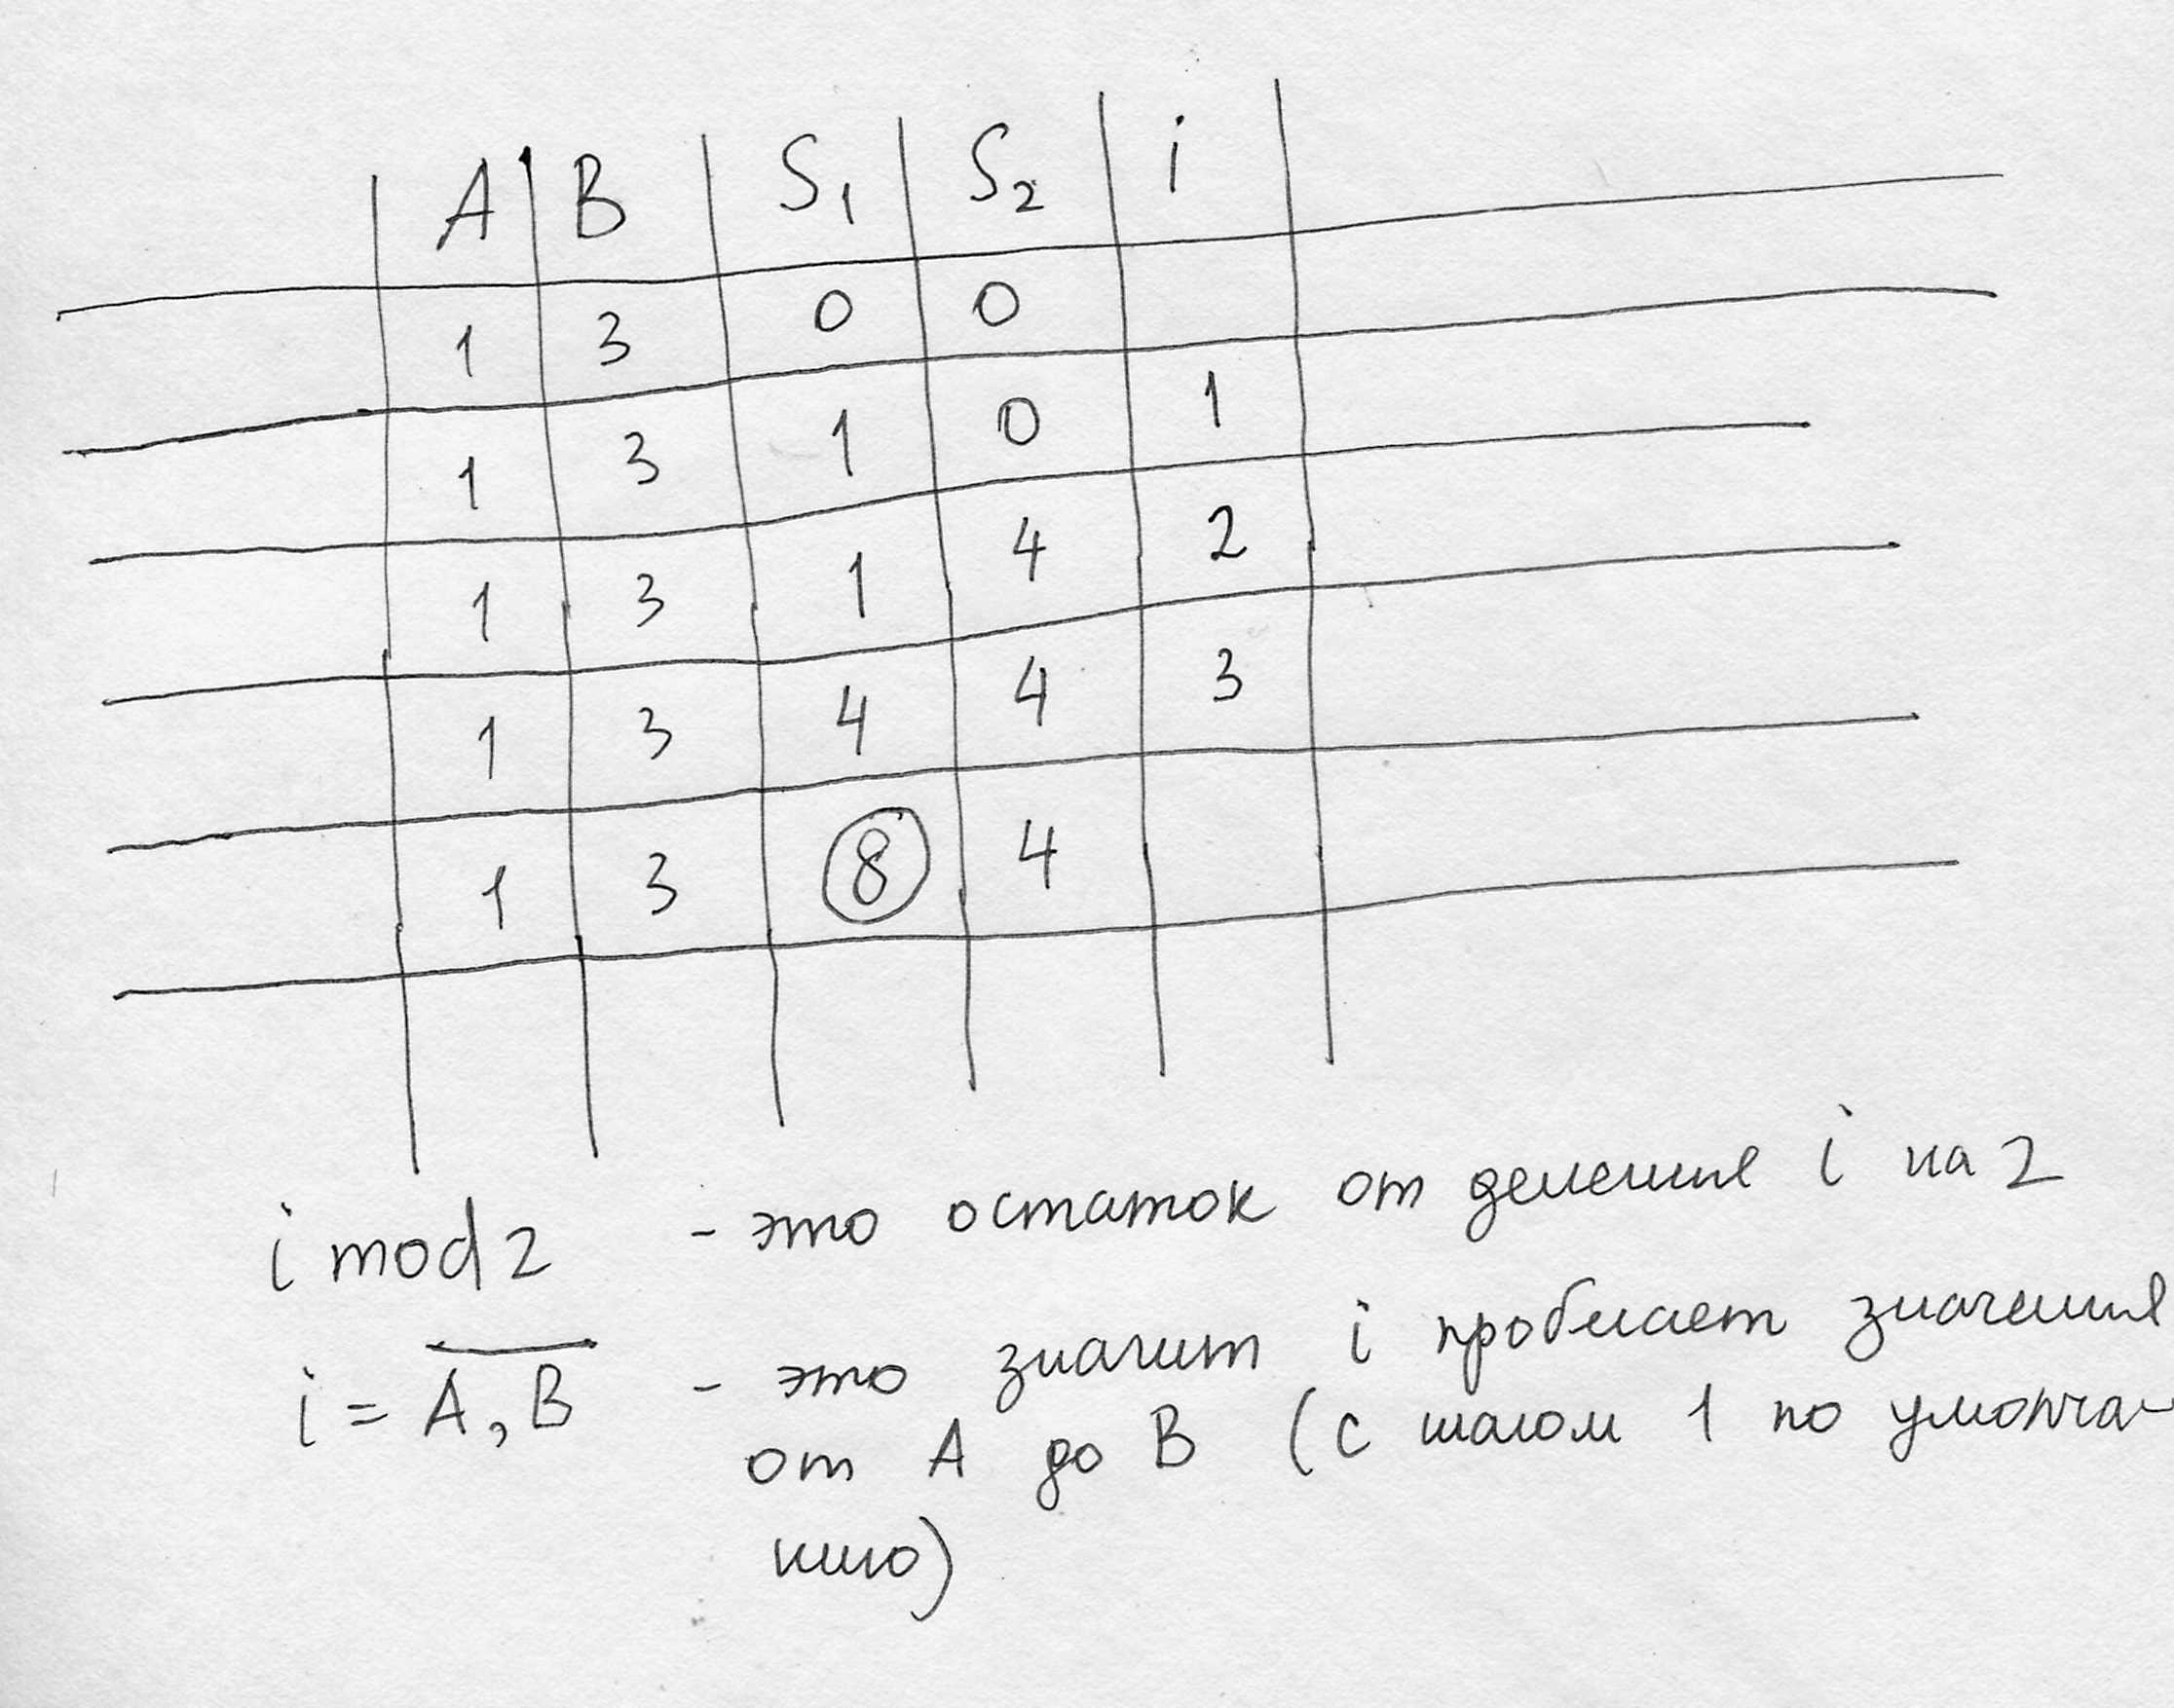 A B S₁ S₂ i
1 3 0 0
1 3 1 0 1
1 3 1 4 2
1 3 4 4 3
1 3 8 4
i mod 2 - это остаток от деления i на 2
i = A, B - это значит i пробегает значения
от A до B (с шагом 1 по умолча-
нию)